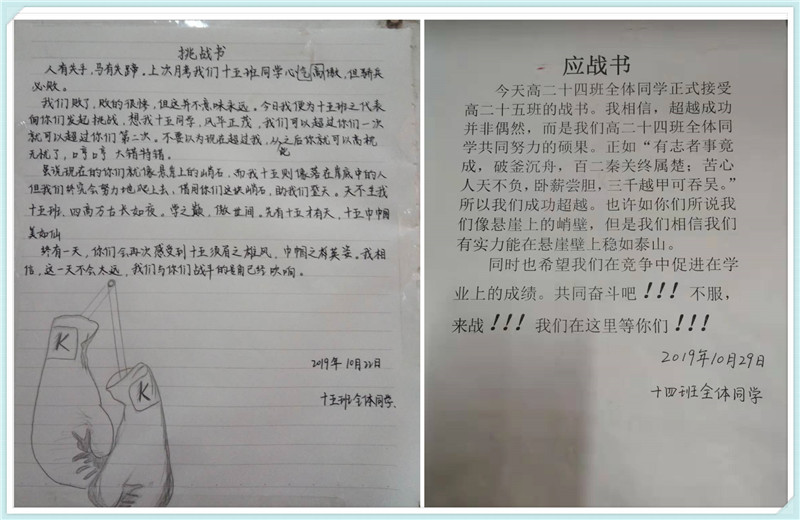 挑战书
人有失手，马有失蹄。上次月考我们十五班同学心高气傲，但骄兵
必败。
我们败了，败的很惨，但这并不意味永远。今日我便为十五班之代表
向你们发起挑战，想我十五同学，风华正茂，我们可以超过你们一次
就可以超过你们第二次。不要以为现在超过我，从之后你就可以高枕
无忧了，哼哼 大错特错。
若说现在的你们就像悬崖上的峭石，而我十五则像落在崖底中的人
但我们终究会努力地爬上去，借用你们这块峭石，助我们登天。天不生我
十五班、四高万古长如夜。学之巅，傲世间。先有十五才有天，十五巾帼
美如仙
终有一天，你们会再次感受到十五须眉之雄风，巾帼之有英姿。我相
信，这一天不会太远，我们与你们战斗的号角已经吹响。
K
K
2019年10月22日
十五班全体同学
应战书
今天高二十四班全体同学正式接受
高二十五班的战书。我相信，超越成功
并非偶然，而是我们高二十四班全体同
学共同努力的硕果。正如“有志者事竟
成，破釜沉舟，百二秦关终属楚；苦心
人天不负，卧薪尝胆，三千越甲可吞吴。”
所以我们成功超越。也许如你们所说我
们像悬崖上的峭壁，但是我们相信我们
有实力能在悬崖壁上稳如泰山。
同时也希望我们在竞争中促进在学
业上的成绩。共同奋斗吧！！！不服，
来战！！！我们在这里等你们！！！
2019年10月29日
十四班全体同学